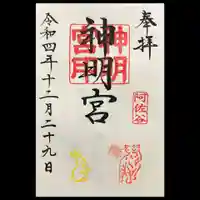 奉拝
神明宮
神明
宮印
阿佐谷
令和四年十二月二十九日